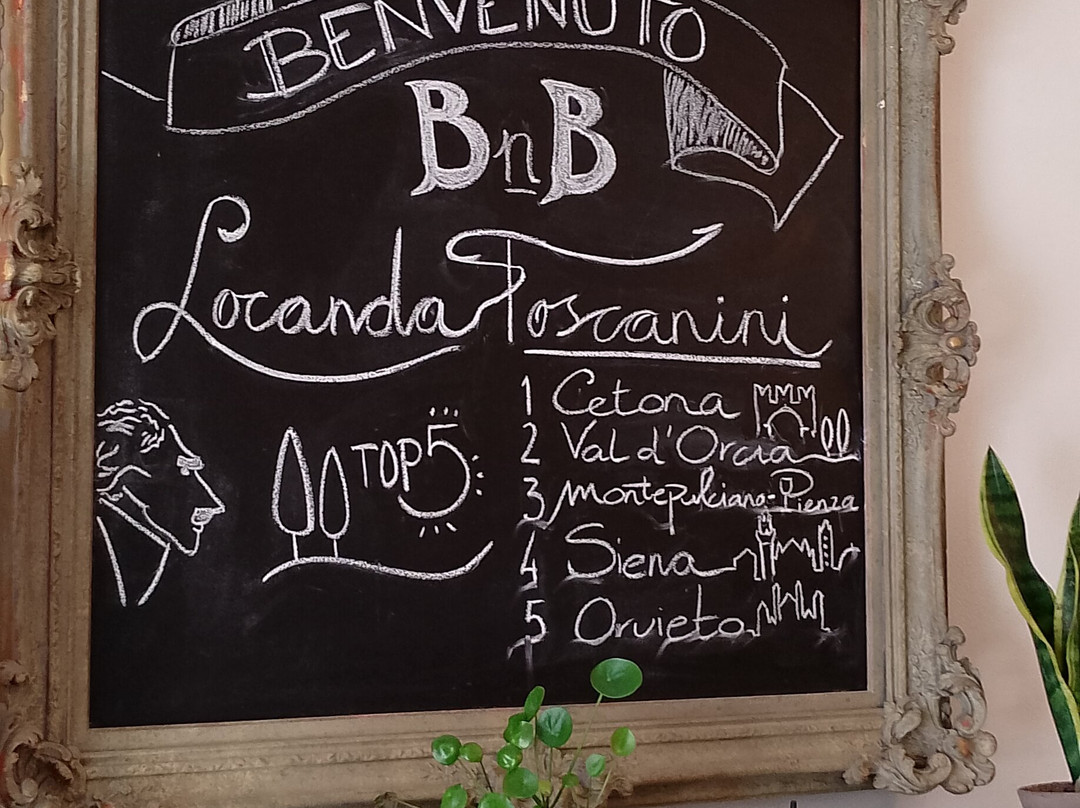 BENVENUTO
BnB
Locanda Toscanini
TOP 5
1 Cetona
2 Val d'Orcia
3 Montepulciano-Pienza
4 Siena
5 Orvieto